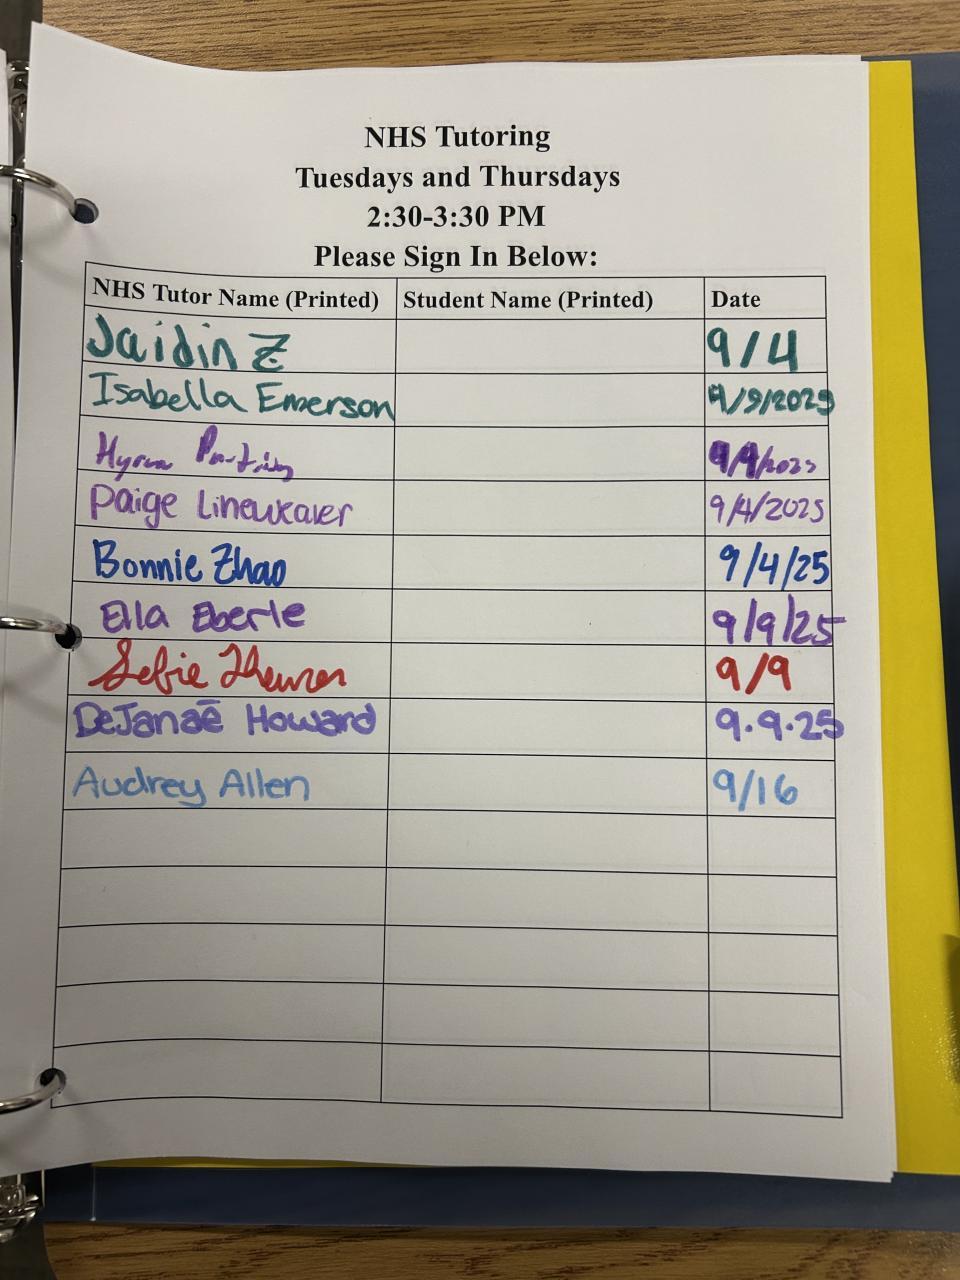 NHS Tutoring
Tuesdays and Thursdays
2:30-3:30 PM
Please Sign In Below:
NHS Tutor Name (Printed) Student Name (Printed) Date
Jaidin Z 9/4
Isabella Emerson 9/9/2025
9/9/2025
Paige Lineweaver 9/4/2025
Bonnie Zhao 9/4/25
Ella Eberle 9/9/25
9/9
DeJanaē Howard 9.9.25
Audrey Allen 9/16